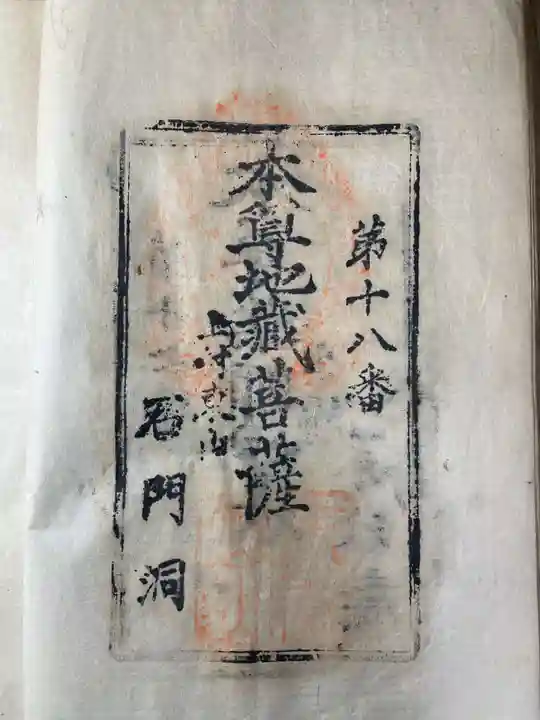 第十八番
本尊地蔵菩薩
石門洞